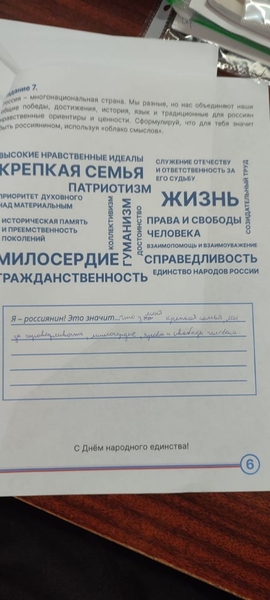 Задание 7.
Россия – многонациональная страна. Мы разные, но нас объединяют наши
общие победы, достижения, история, язык и традиционные для россиян
нравственные ориентиры и ценности. Сформулируй, что для тебя значит
быть россиянином, используя «облако смыслов».
ВЫСОКИЕ НРАВСТВЕННЫЕ ИДЕАЛЫ
КРЕПКАЯ СЕМЬЯ
ПАТРИОТИЗМ
ПРИОРИТЕТ ДУХОВНОГО
НАД МАТЕРИАЛЬНЫМ
ИСТОРИЧЕСКАЯ ПАМЯТЬ
И ПРЕЕМСТВЕННОСТЬ
ПОКОЛЕНИЙ
КОЛЛЕКТИВИЗМ
ГУМАНИЗМ
ДОСТОИНСТВО
МИЛОСЕРДИЕ
ГРАЖДАНСТВЕННОСТЬ
СЛУЖЕНИЕ ОТЕЧЕСТВУ
И ОТВЕТСТВЕННОСТЬ ЗА
ЕГО СУДЬБУ
СОЗИДАТЕЛЬНЫЙ ТРУД
ЖИЗНЬ
ПРАВА И СВОБОДЫ
ЧЕЛОВЕКА
ВЗАИМОПОМОЩЬ И ВЗАИМОУВАЖЕНИЕ
СПРАВЕДЛИВОСТЬ
ЕДИНСТВО НАРОДОВ РОССИИ
Я – россиянин! Это значит... что у меня крепкая семья, мы
за справедливость, милосердие, права и свободы человека.
С Днём народного единства!
6